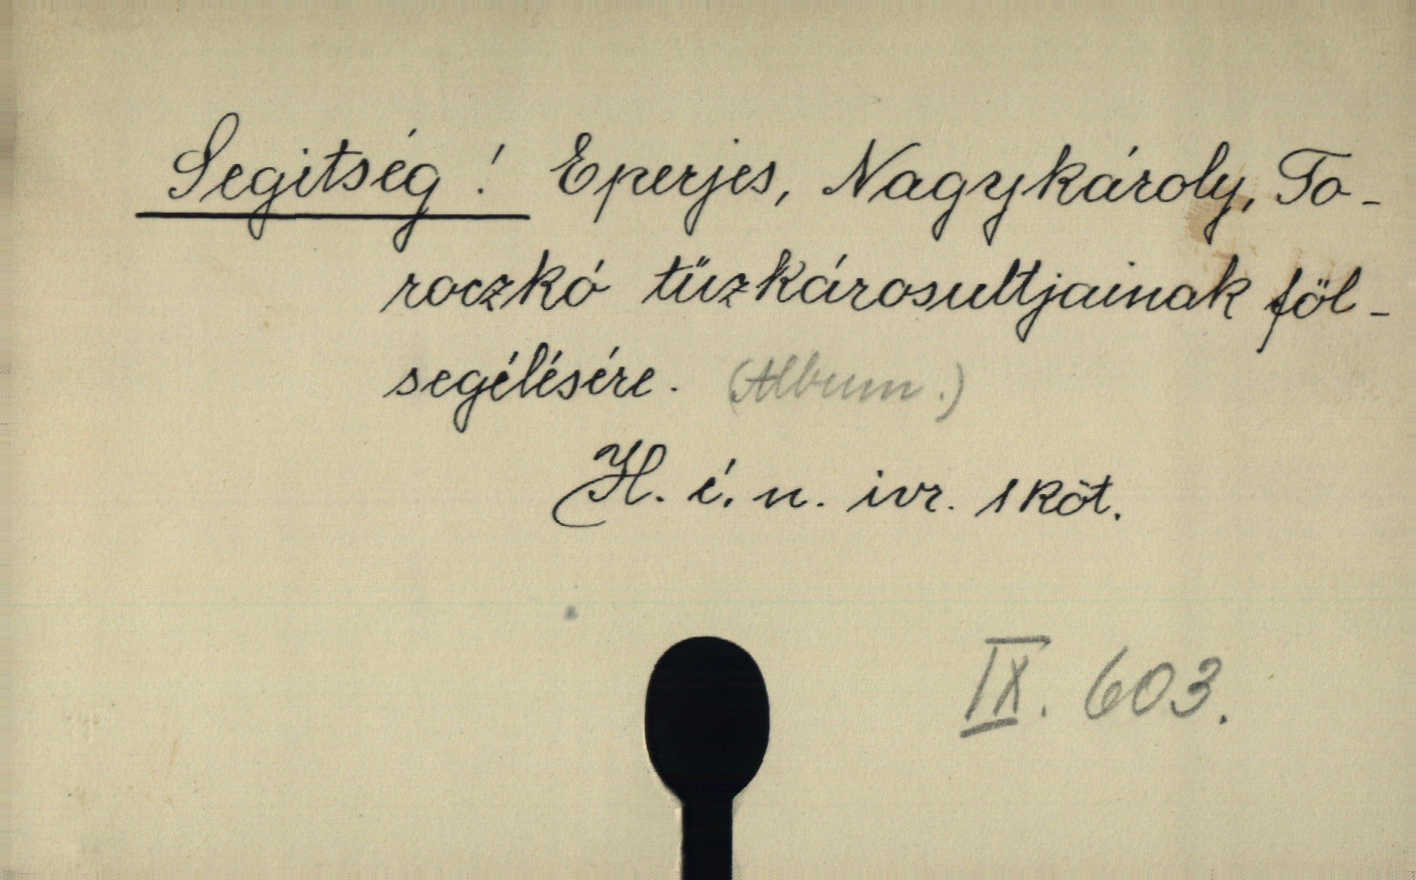 Segitség! Eperjes, Nagykároly, To-
roczkó tűzkárosultjainak föl-
segélésére. (Album.)
H. é. n. ivr. 1 köt.
IX. 603.